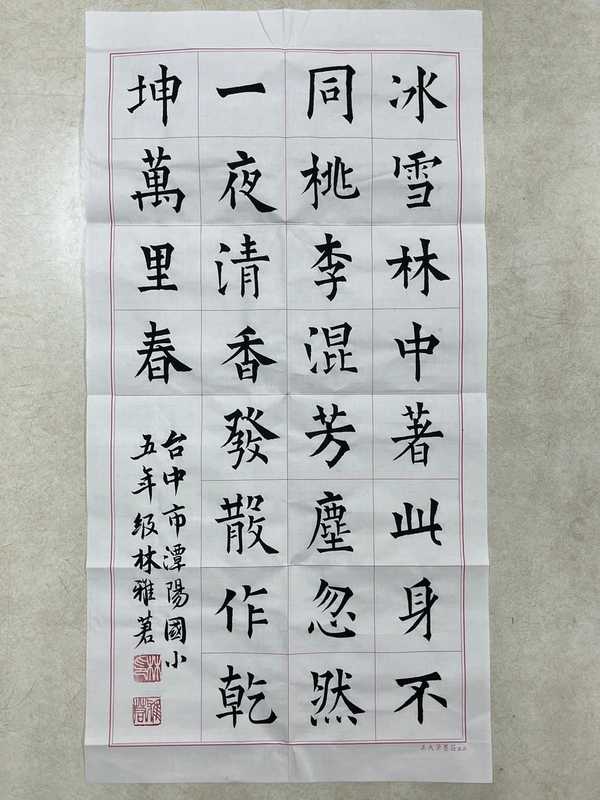 冰雪林中著此身不
同桃李混芳塵忽然
一夜清香發散作乾
坤萬里春
台中市潭陽國小
五年級林雅萻